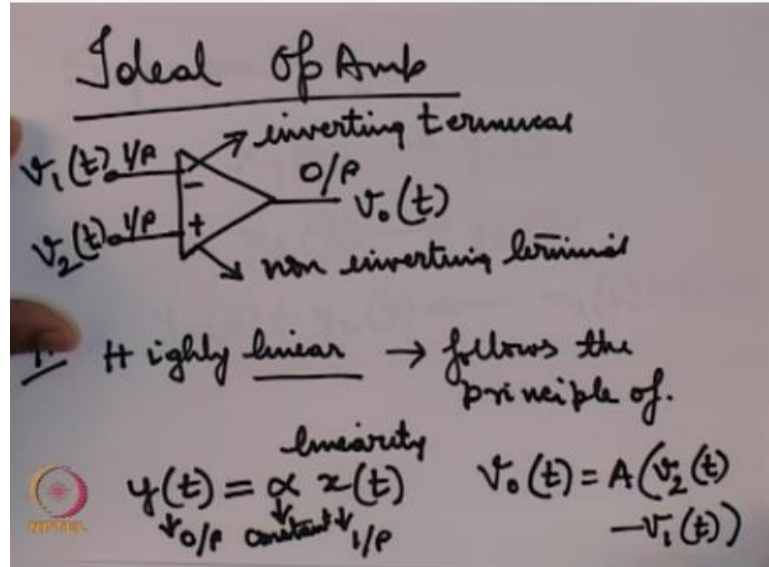 Ideal Op Amp
v₁(t) I/P - inverting terminal
O/P
v₀(t)
v₂(t) I/P + non inverting terminal
1. Highly linear → follows the
principle of.
linearity
y(t) = α x(t)
O/P constant I/P
v₀(t) = A(v₂(t)
-v₁(t))
NPTEL